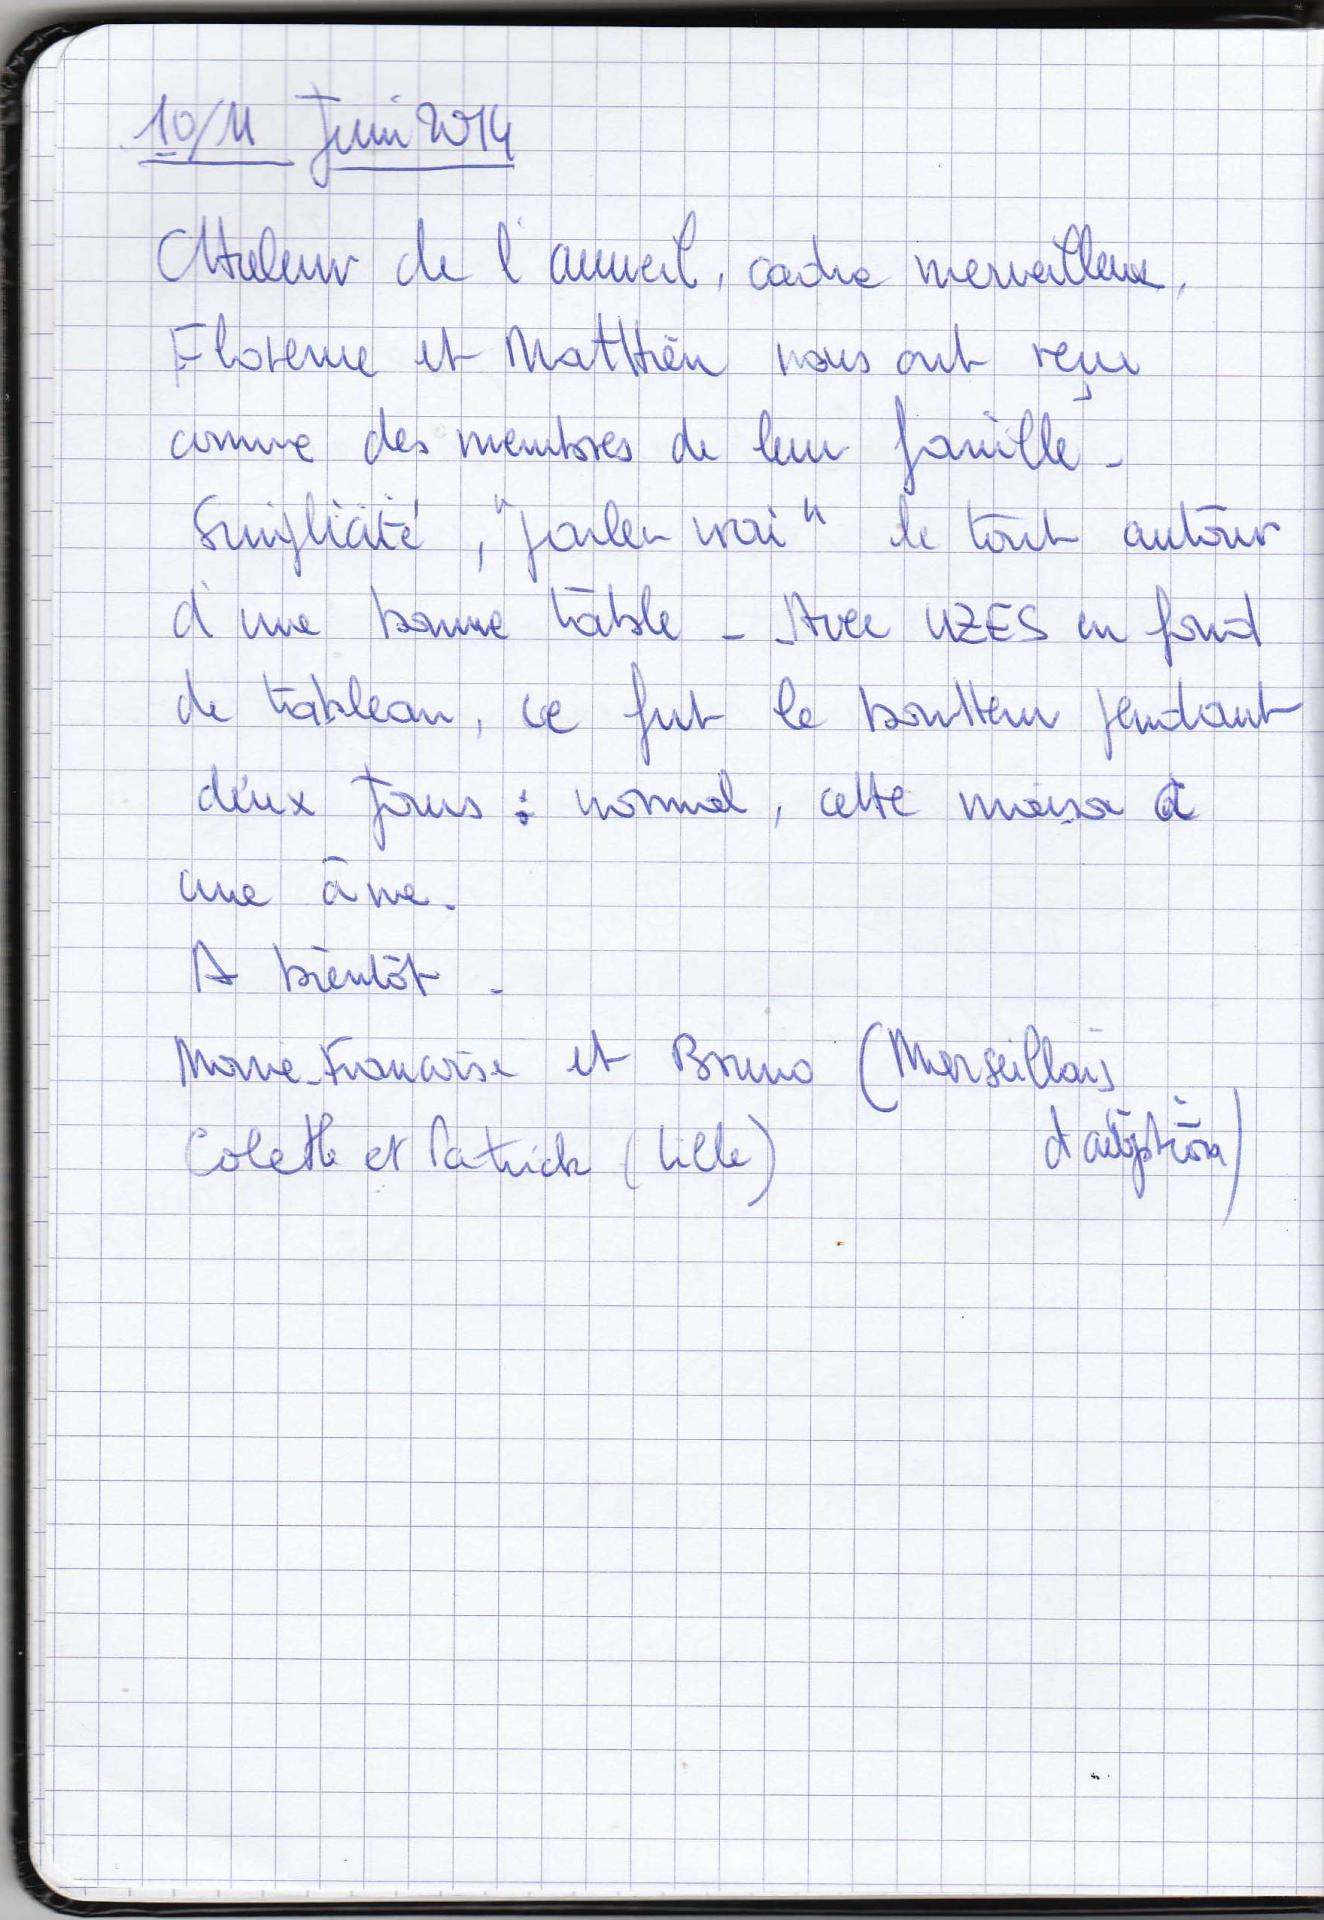 10/11 Juin 2014
Chaleur de l'accueil, cadre merveilleux,
Florence et Matthieu nous ont reçu
comme des membres de leur famille -
Simplicité, "parler vrai" le tout autour
d'une bonne table - Avec UZES en fond
de tableau, ce fut le bonheur pendant
deux jours : normal, cette maison a
une âme.
A bientôt -
Marie-Françoise et Bruno (Marseillais
d'adoption)
Colette et Patrick (Lille)